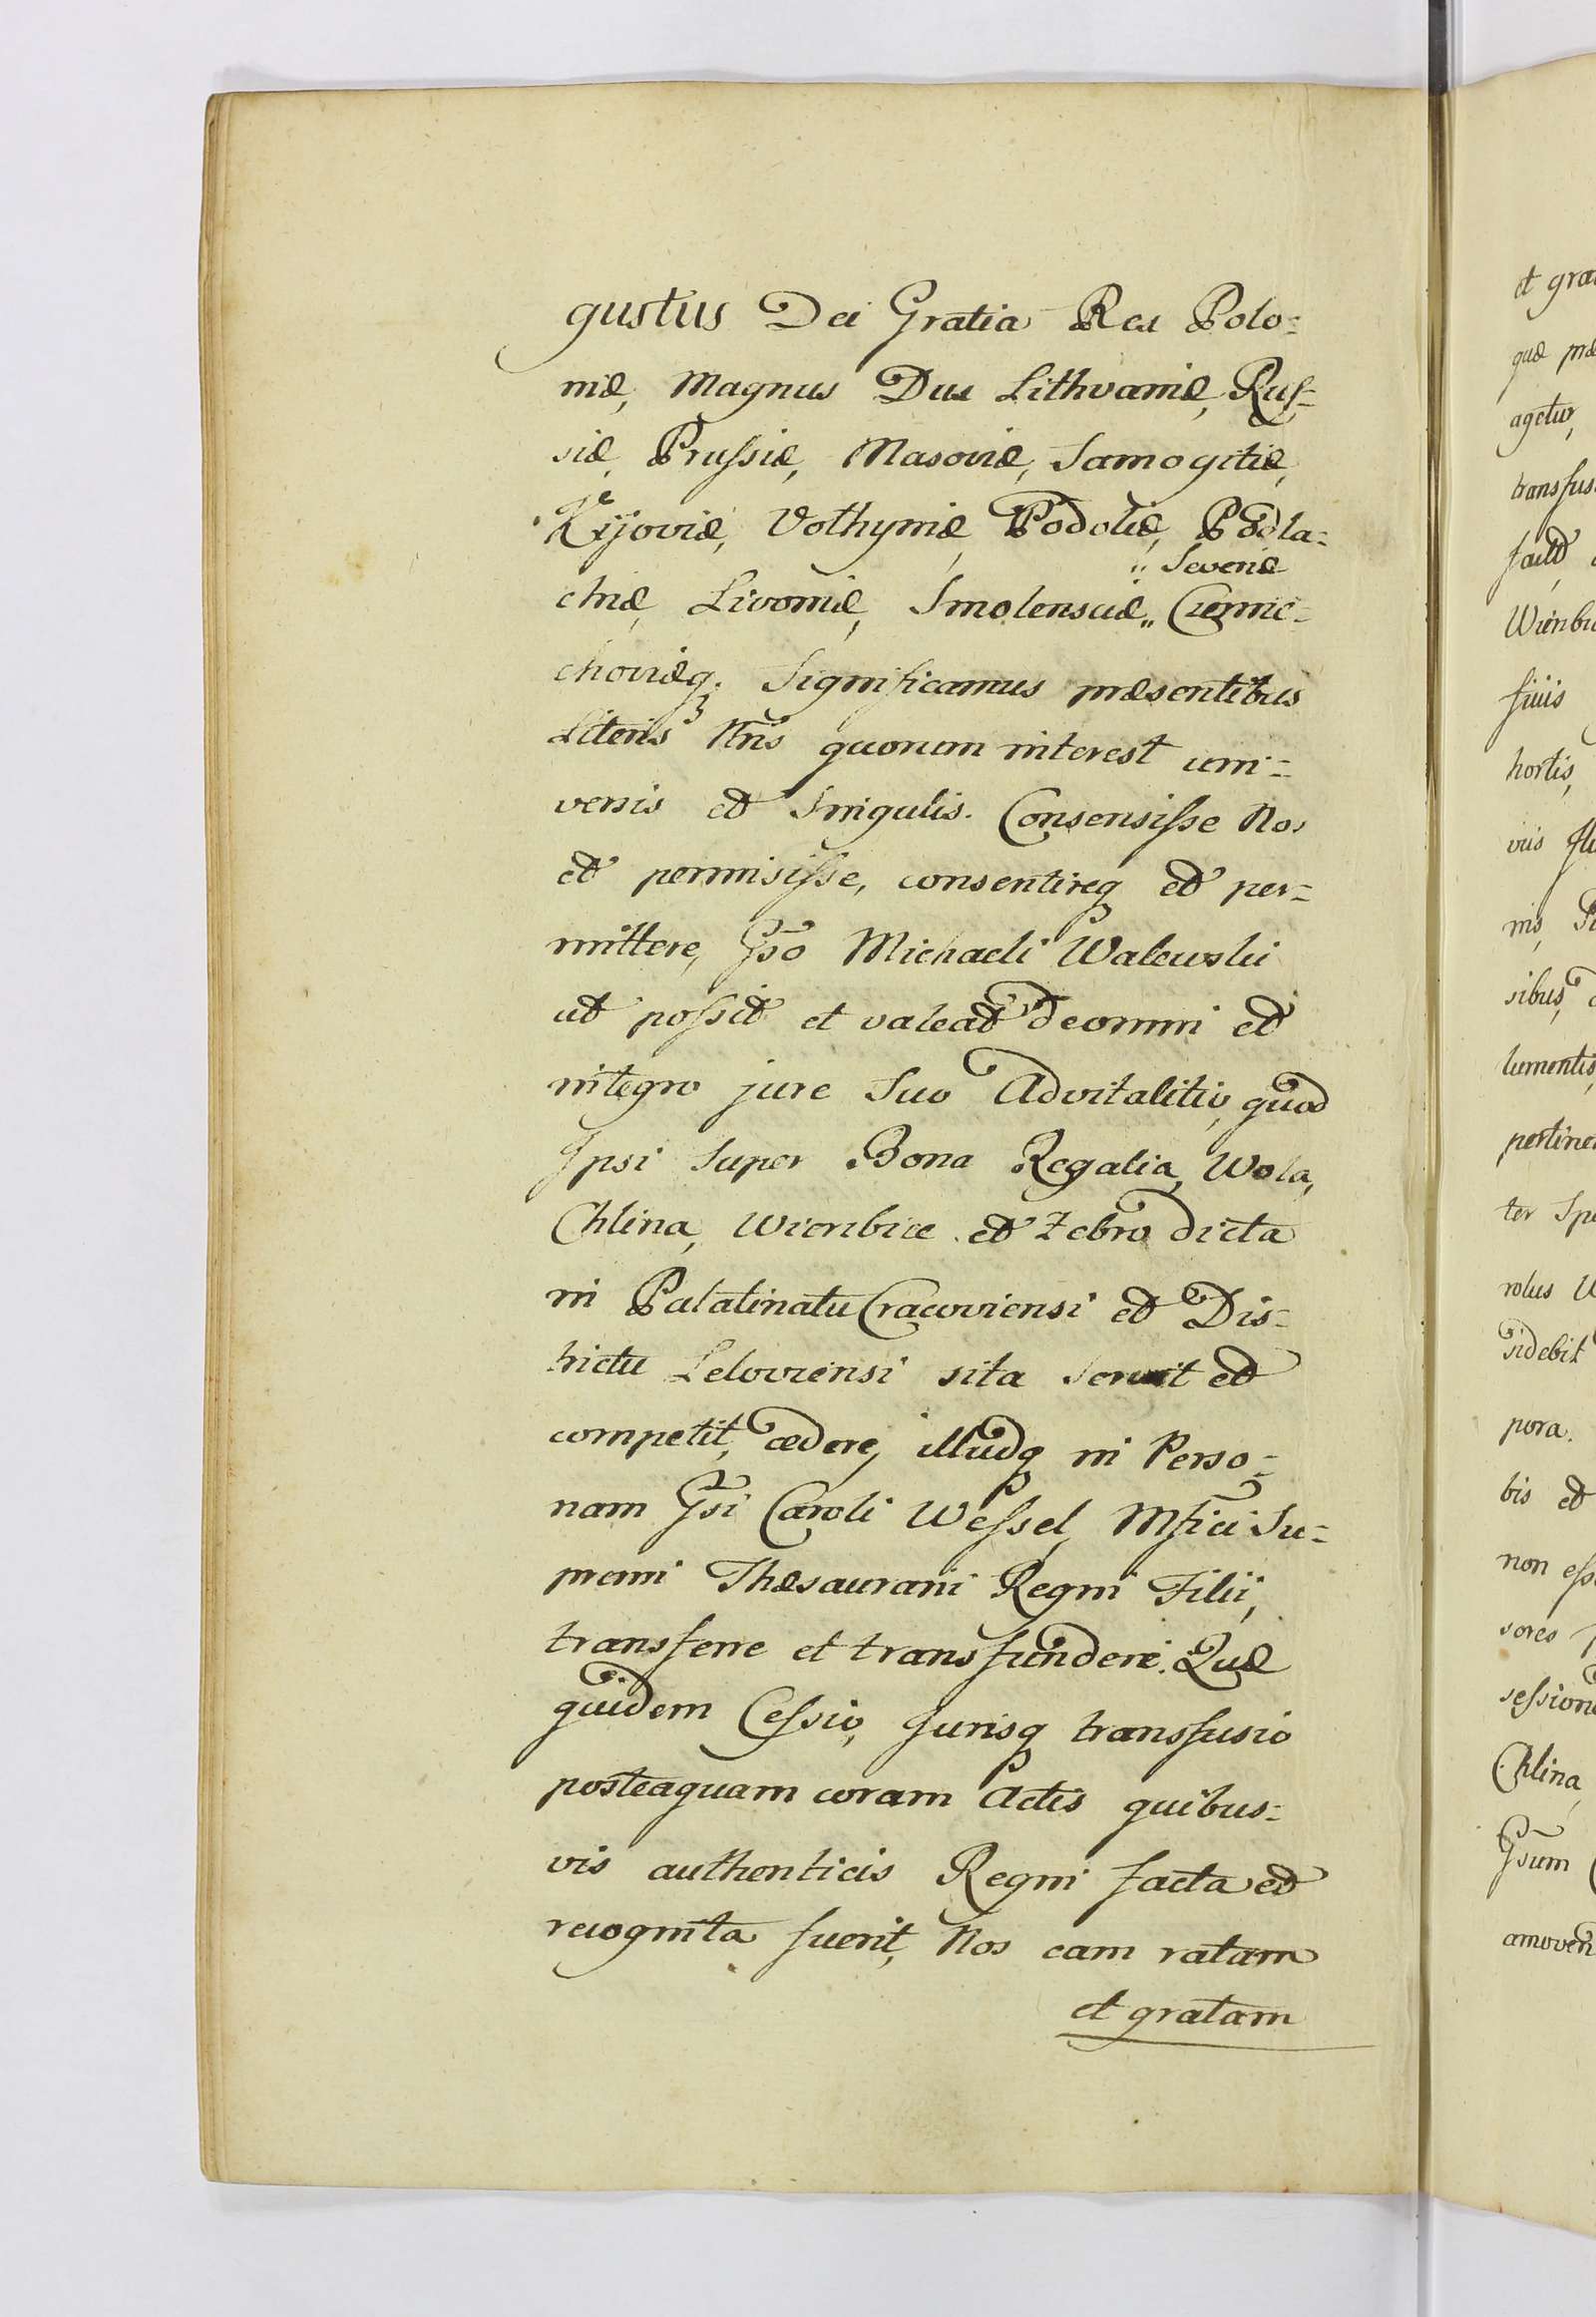 gustus Dei Gratia Rex Polo=
niæ, Magnus Dux Lithvaniæ, Rus=
siæ, Prussiæ, Masoviæ, Samogitiæ,
Kijoviæ, Volhyniæ, Podoliæ, Podla=
" Severiæ
chiæ, Livoniæ, Smolensciæ „ Czernie=
choviæq. Significamus præsentibus
Literis Nris quorum interest uni=
versis et Singulis. Consensisse Nos
et permisisse, consentireq et per=
mittere, Gso Michaeli Walewski
ut possit et valeat de omni et
integro jure Suo Advitalitio, quod
Ipsi Super Bona Regalia, Wola,
Chlina, Wierzbice et Zebro dicta
in Palatinatu Cracoviensi et Dis=
trictu Leloviensi sita Servit et
competit, cedere, illudq in Perso=
nam Gsi Caroli Wessel, Mfici Su=
premi Thæsaurarii Regni Filii,
transferre et transfundere. Quæ
quidem Cessio, Jurisq transfusio
posteaquam coram Actis quibus=
vis authenticis Regni facta et
recognita fuerit, Nos eam ratam
et gratam
et gra
quæ præ
agetur,
transfus
facta
fiuis
hortis,
viis
nis,
sibus,
lumentis
pertine
ter Spe
rolus W
sidebit
pora.
bis et
non ess
sores
session
Chlina
Gsum
amoven